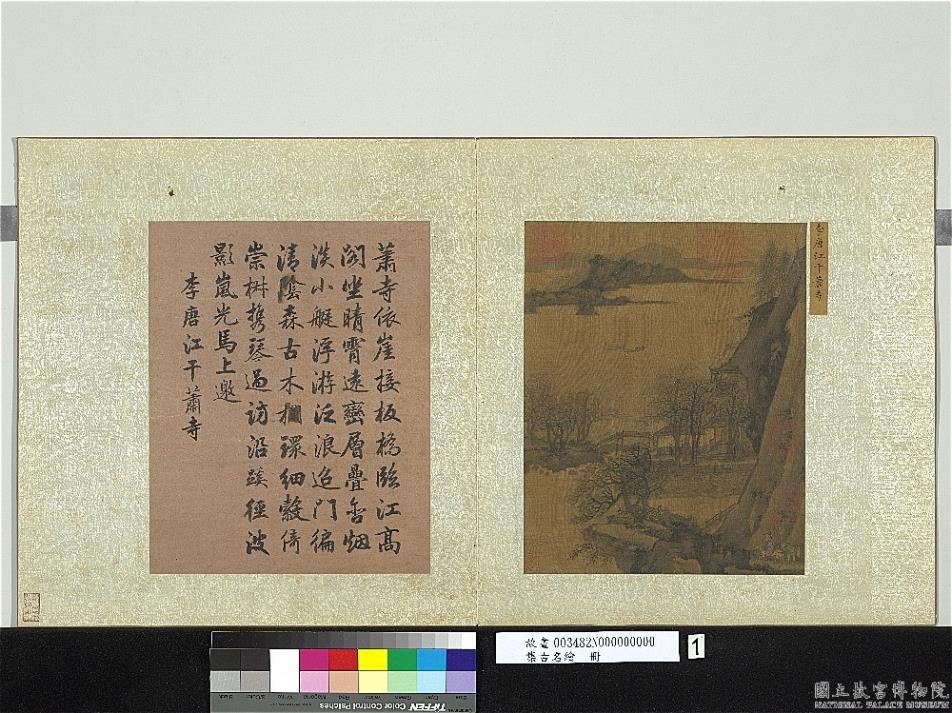 李唐江干蕭寺
蕭寺依崖接板橋臨江高
閣坐晴霄遠巒層疊含烟
淡小艇浮游泛浪迢門徧
清陰森古木欄環細縠倚
崇椒携琴過訪沿蹊徑波
影嵐光馬上邀
李唐江干蕭寺
故畫003482N000000000
集古名繪 冊
1
TIFFEN Color Control Patches
國立故宮博物院
NATIONAL PALACE MUSEUM